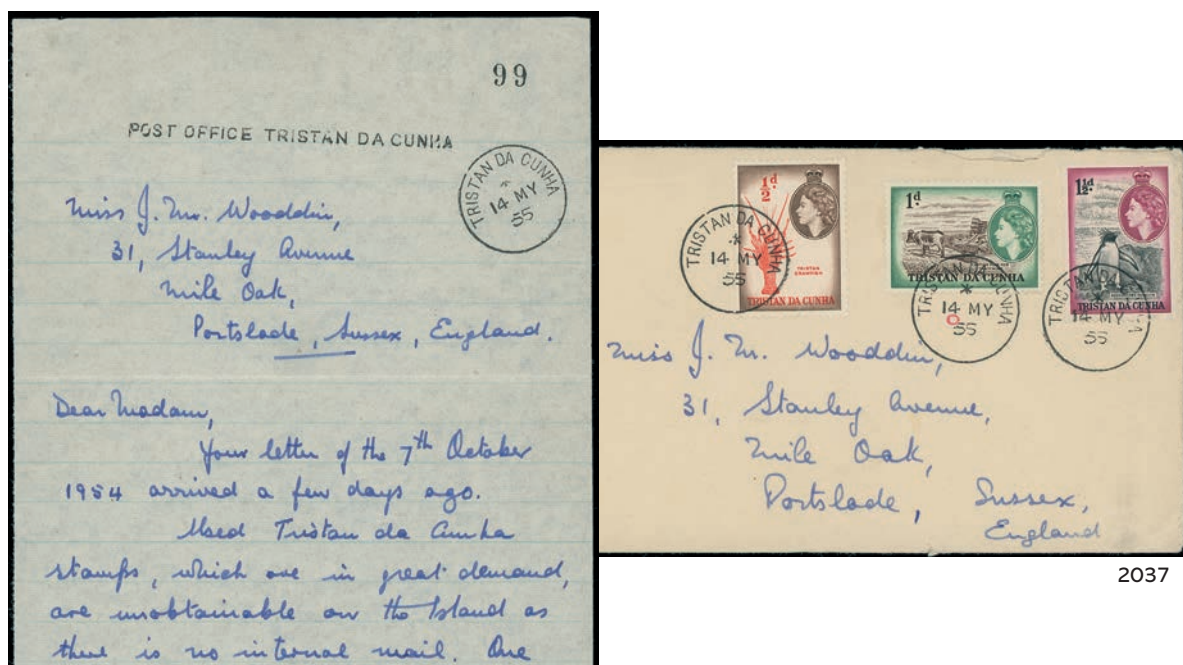 99
POST OFFICE TRISTAN DA CUNHA
TRISTAN DA CUNHA
14 MY
55
Miss J. M. Wooddin,
31, Stanley Avenue
Mile Oak,
Portslade, Sussex, England.
Dear Madam,
Your letter of the 7th October
1954 arrived a few days ago.
Used Tristan da Cunha
stamps, which are in great demand,
are unobtainable on the Island as
there is no internal mail. One
½d.
TRISTAN
CRAWFISH
TRISTAN DA CUNHA
TRISTAN DA CUNHA
14 MY
55
1d.
TRISTAN DA CUNHA
TRISTAN DA CUNHA
14 MY
55
1½d.
TRISTAN DA CUNHA
TRISTAN DA CUNHA
14 MY
55
Miss J. M. Wooddin,
31, Stanley Avenue,
Mile Oak,
Portslade, Sussex,
England
2037